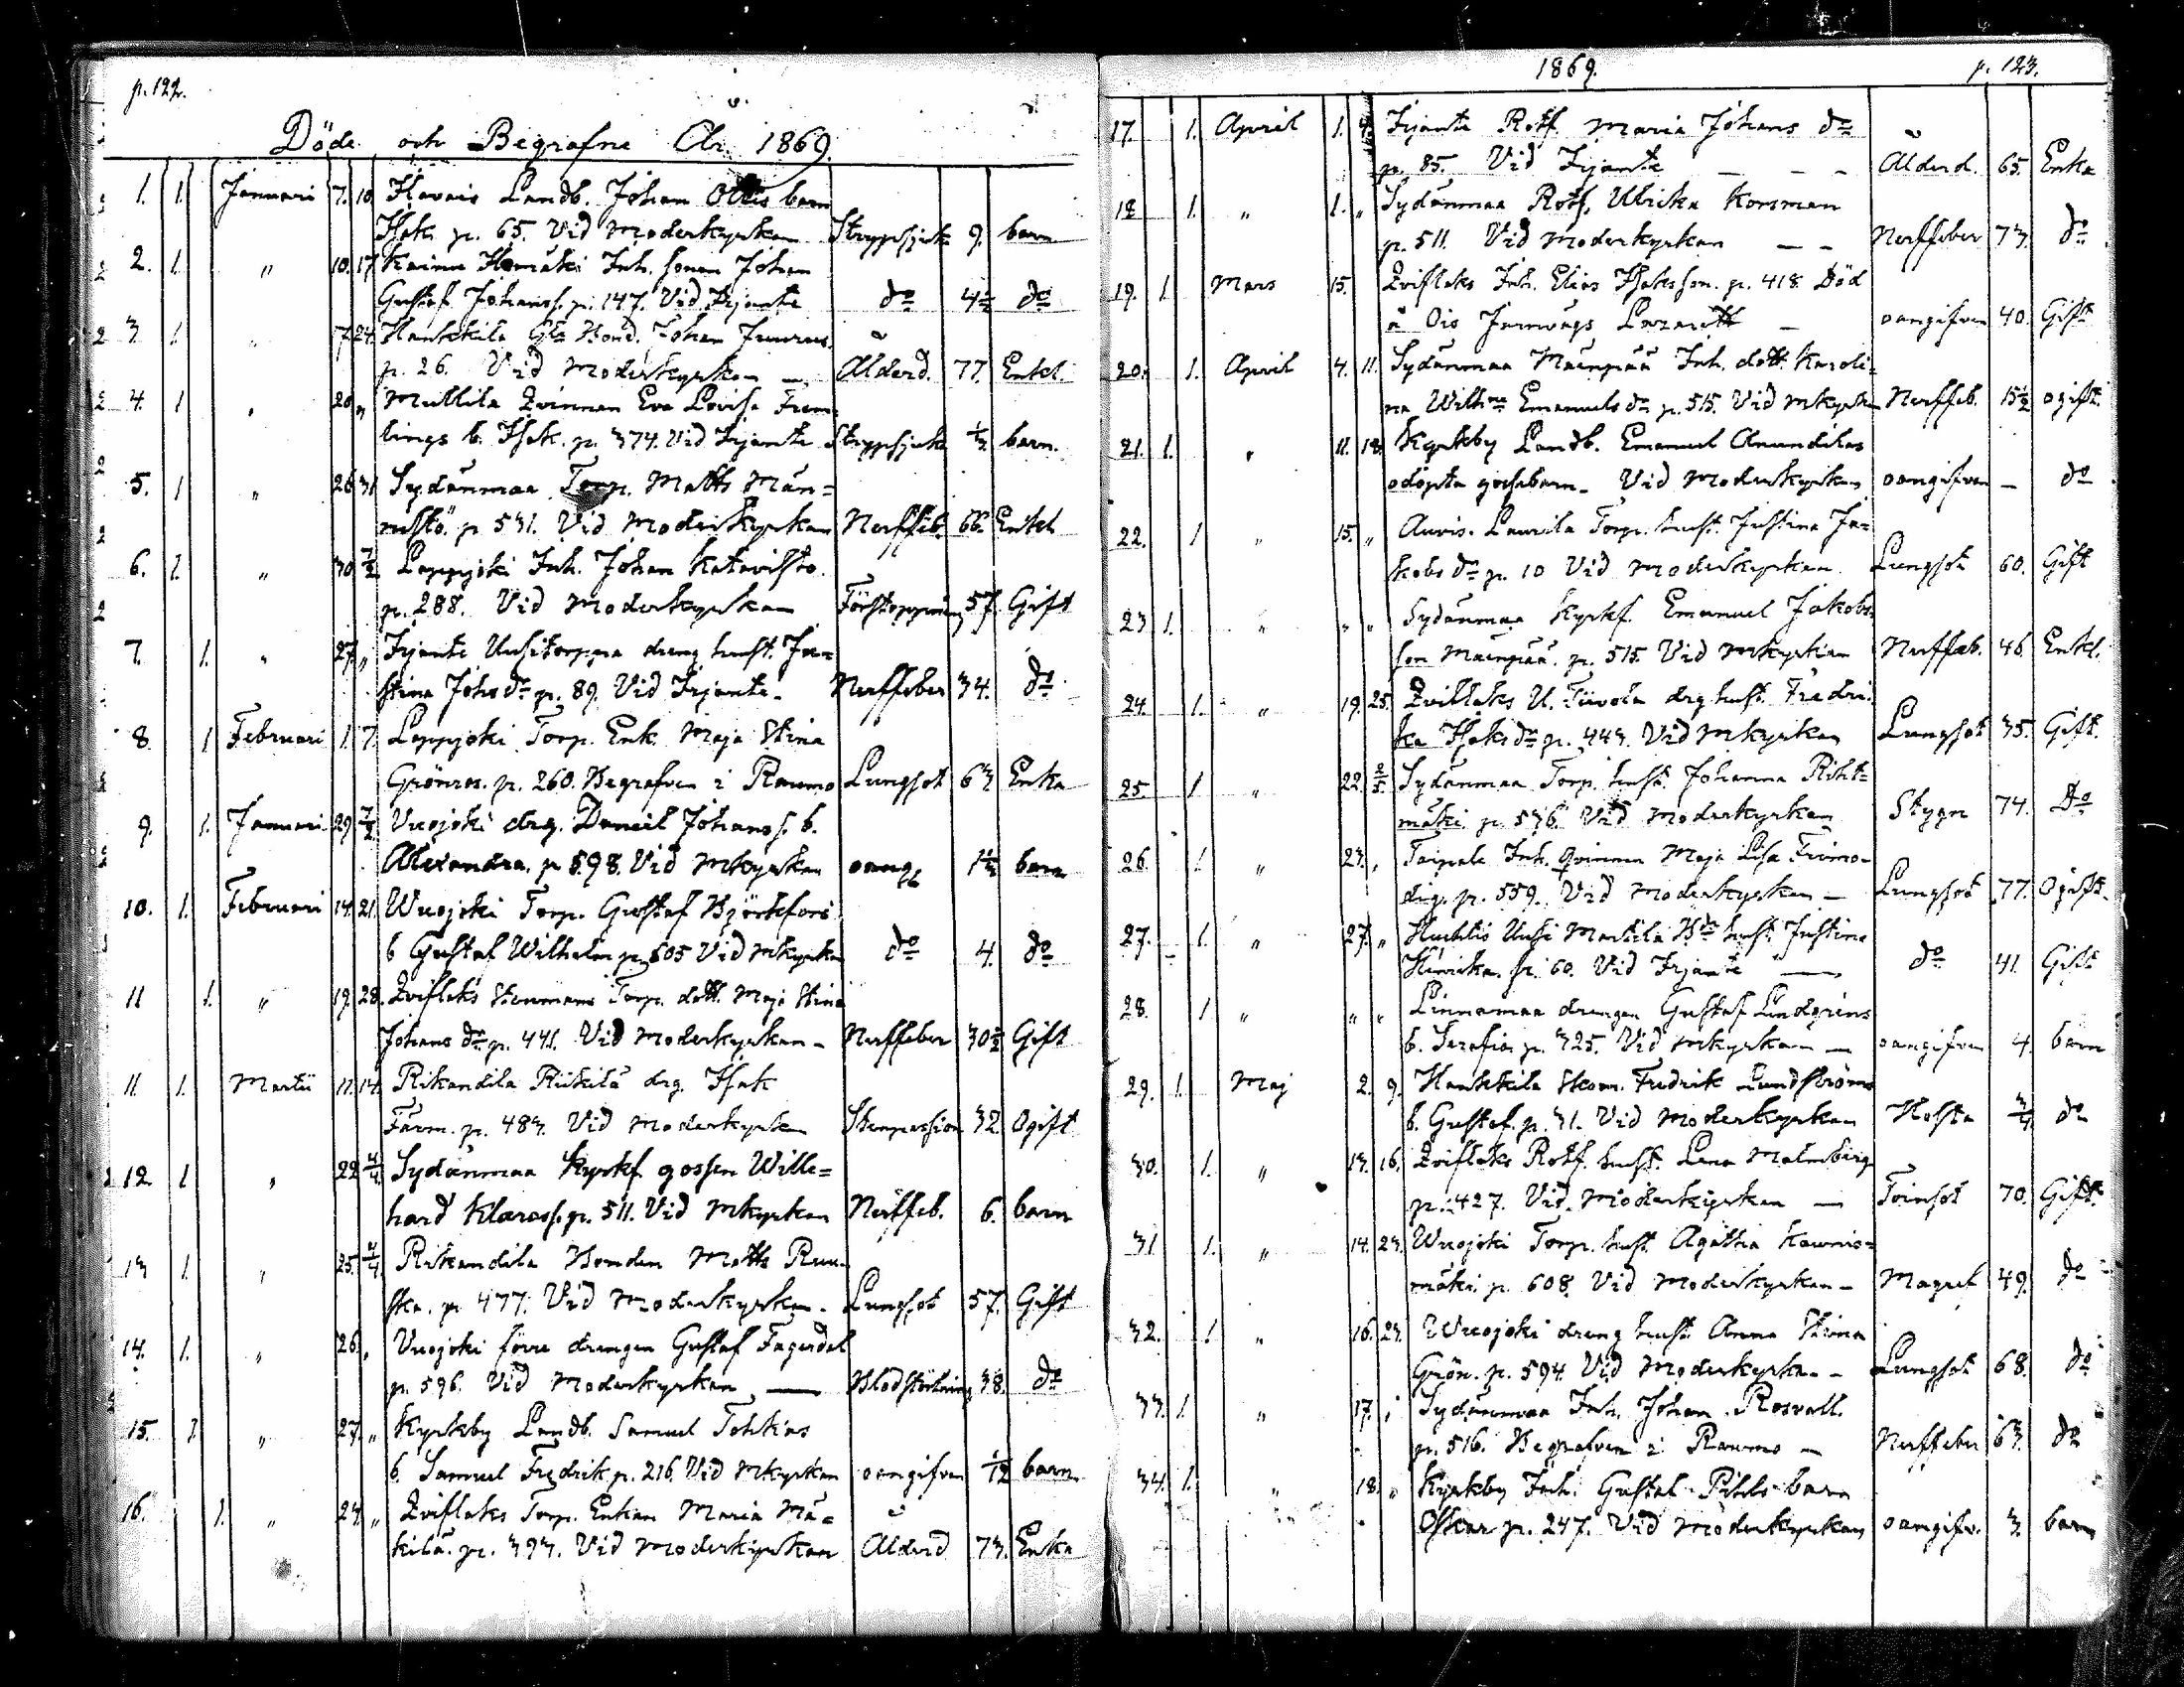 p. 122.
Döde och Begrafne År 1869.
1. 1. Januari 7. 10. Havais Landb. Johan Ollis barn
Isak. p. 65. Vid Moderkyrkan Strypsjuka 9. barn
2. 1. " 10. 17 Kainu Inh. sonen Johan
Gustaf Johanss. p. 147. Vid Irjante do 4½ do
3 1. " 17. 24. Hankkila Gla Bond. Johan
p. 26. Vid Moderkyrkan — Ålderd. 77. Enkl.
4. 1 " 20 " Mullila Qvinnan Eva Lovisa Frem-
lings b. Isak. p. 374. Vid Irjante Strypsjuka ⅓ barn.
5. 1 " 26 31 Sydänmaa Torp. Matts Män-
nistö. p 531. Vid Moderkyrkan Nerffeb. 66. Enkel
6. 1. " 30 7/2 Lappijoki Inh. Johan Katavisto.
p. 288. Vid Moderkyrkan Förstoppning 57. Gift
7. 1. " 27 " Irjante Uusitorppa dreng hust. Ju-
stina Johs dr p. 89. Vid Irjante - Nerffeber 34. do
8. 1 Februari 1. 7. Lappijoki Torp. Enk. Maja Stina
Grönros. p. 260. Begrafven i Raumo Lungsot 63 Enka
9. 1. Januari 29 7/2 Vuojoki drg. Daniel Johanss. b.
Alexandra. p 598. Vid Mkyrkan oang. 1½ barn
10. 1. Februari 14. 21. Wuojoki Torp. Gustaf Björkfors
b Gustaf Wilhelm p. 605 Vid Mkyrkan do 4. do
11 1. " 19. 28. Qviflaks Stenmans Torp. dott. Maja Stina
Johans dr p. 441. Vid Moderkyrkan - Nerffeber 30½ Gift
11. 1. Martii 11. 14. Rikandila Riikilä drg. Isak
Färm. p. 483. Vid Moderkyrkan 32. Ogift
12 1 " 22 4/4 Sydänmaa Kyrkf. gossen Wille-
hard Klaress. p. 511. Vid Mkyrkan Nerffeb. 6. barn
13 1. " 25. 4/4 Rikandila Bonden Matts Ruu-
ska. p 477. Vid Moderkyrkan - Lungsot 57. Gift
14. 1. " 26. " Vuojoki förre drengen Gustaf Fagerdal
p. 596. Vid Moderkyrkan — Blodstörtning 38. do
15. 1 " 27. " Kyrkby Landb. Samuel Tohkias
b. Samuel Fredrik p. 216. Vid Mkyrkan oangifven 1/12 barn
16. 1. " 24. " Qviflaks Torp. Enkan Maria Mä-
kilä. p. 393. Vid Moderkyrkan Ålderd 73. Enka
1869. p. 123.
17. 1. April 1. 4. Irjante Rotf. Maria Johans dr
p. 85. Vid Irjante — — - Ålderd. 65. Enka
18 1. " 1. " Sydänmaa Rotf. Ulrika Korsman
p. 511. Vid Moderkyrkan — - Nerffeber 73. do
19. 1 Mars 15. Qviflaks Inh. Elias Isaksson. p. 418. Död
å Ois Jernvägs Lazarett - oangifven 40. Gift
20. 1. April 4. 11. Sydänmaa Mäenpää Inh. dott. Karoli-
na Wilhna Emanuels dr p. 515. Vid Mkyrkan Nerffeb. 15½ ogift.
21. 1. " 11. 18. Kyrkby Landb. Emanuel Anundilas
odöpta gossebarn - Vid Moderkyrkan oangifven — do
22. 1 " 15. " Auvis. Laurila Torp. hust. Justina Ja-
kobs dr p. 10 Vid Moderkyrkan. Lungsot 60. Gift
23 1. " " " Sydänmaa Kyrkf. Emanuel Jakobs-
son Mäenpää. p. 515. Vid Mkyrkan Nerffeb. 46. Enkl.
24. 1. " 19. 25. Qviflaks U. Tiivola drg hust. Fredri-
ka Isaks dr p. 443. Vid Mkyrkan Lungsot 35. Gift.
25. 1 " 22. 2/5. Sydänmaa Torp. hust. Johanna Riht-
mäki. p. 536. Vid Moderkyrkan Stygn 74. Do
26. 1. " 23. " Taipale Inh. Qvinnan Maja Lisa Frimo-
dig. p. 559. Vid Moderkyrkan — Lungsot 77. Ogift.
27. 1. " 27. " Huhtis Uusi Martila Bde hust. Justina
Hinrika. p. 60. Vid Irjante — do 41. Gift
28. 1 " " " Linnamaa drengen Gustaf Lindgrens
b. Serafia. p. 325. Vid Mkyrkan — oangifven 4. barn
29. 1. Maj 2. 9. Hankkila Skom. Fredrik Lundströms
b. Gustaf. p. 31. Vid Moderkyrkan Hosta ¾ do
30. 1. " 13. 16. Qviflaks Rotf. hust. Lena Malmberg
p. 427. Vid. Moderkyrkan — Tvinsot 70. Gift
31 1. " 14. 23. Wuojoki Torp. hust. Agatha Kaunis-
mäki. p. 608. Vid Moderkyrkan - Magref 49. do
32. 1 " 16. 23. Wuojoki dreng hust. Anna Stina
Grön. p. 594. Vid Moderkyrka- - Lungsot 68. do
33. 1. " 17. " Sydänmaa Inh. Johan Rosvall.
p. 516. Begrafven i Raumo — Nerffeber 63. do
34. 1. " 18. " Kyrkby Inh. Gustaf Pihls barn
Oskar p. 247. Vid Moderkyrkan oangifv. 3. barn